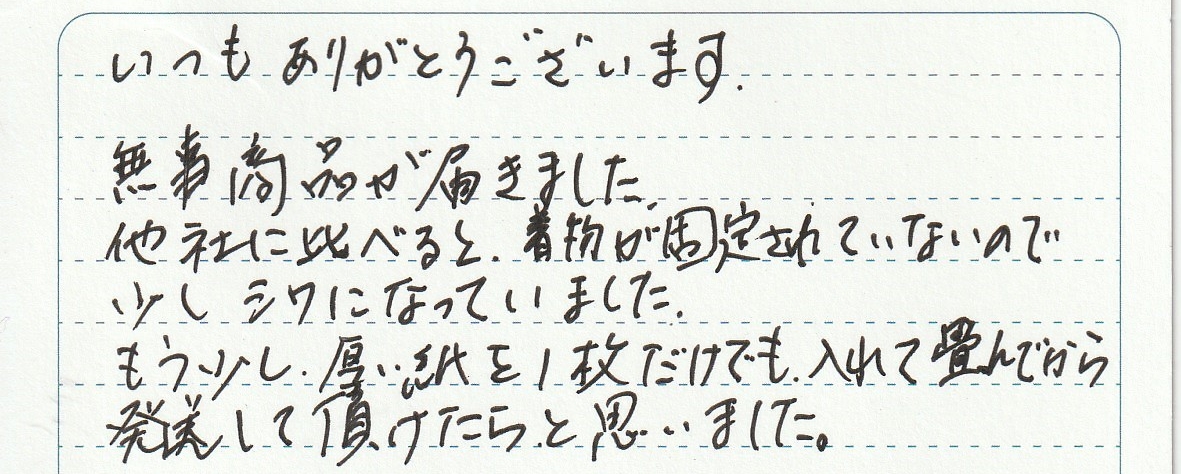 いつもありがとうございます.
無事商品が届きました.
他社に比べると、着物が固定されていないので
少しシワになっていました.
もう少し、厚い紙を1枚だけでも、入れて畳んでから
発送して頂けたらと思いました。